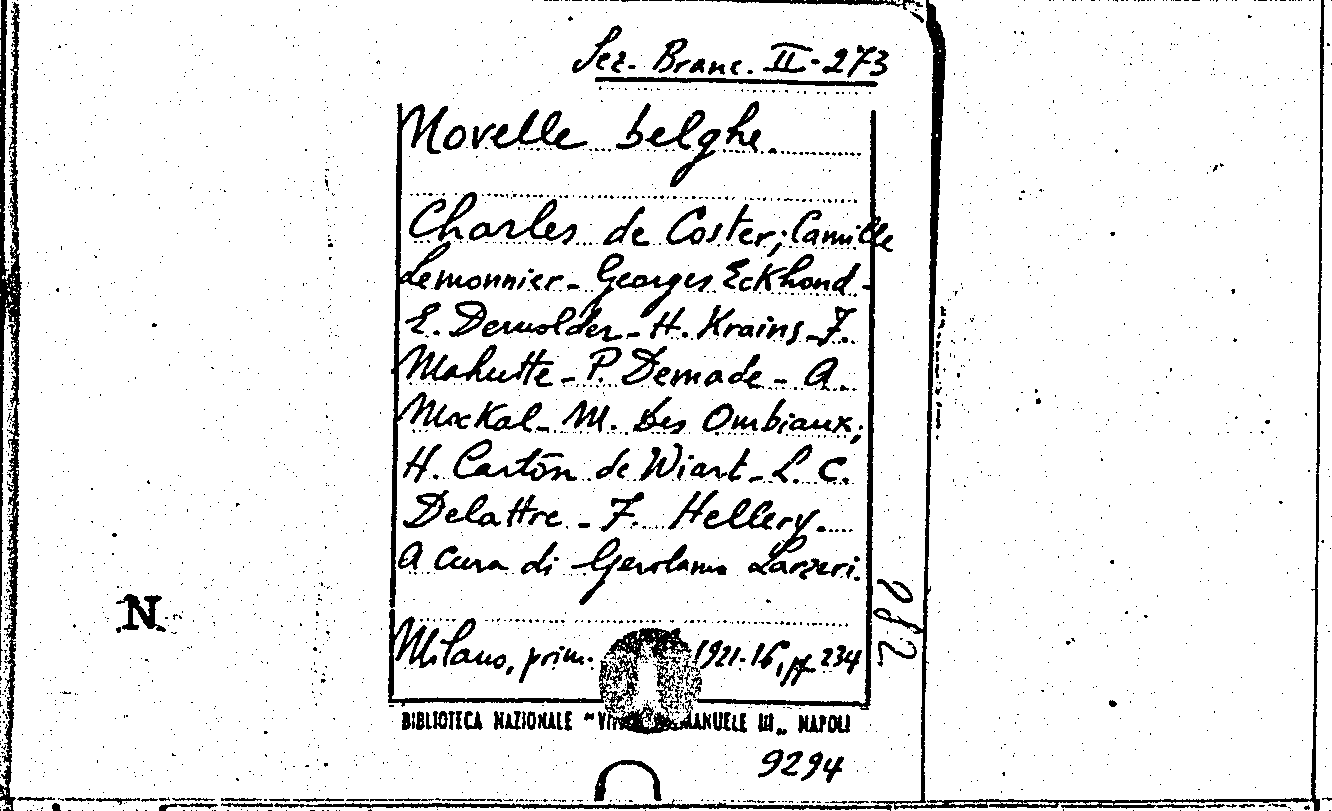 Sez. Branc. II-273
Novelle belghe.
Charles de Coster; Camille
Lemonnier - Georges Eckhond -
E. Demolder - H. Krains - F.
Mahutte - P. Demade - A.
Mockal - M. Des Ombiaux;
H. Carton de Wiart - L. C.
Delattre - F. Hellery.
A cura di Gerolamo Larzeri.
N
Milano, prim. 1921-16, pp 234
282
BIBLIOTECA NAZIONALE "VITT EMANUELE III" NAPOLI
9294